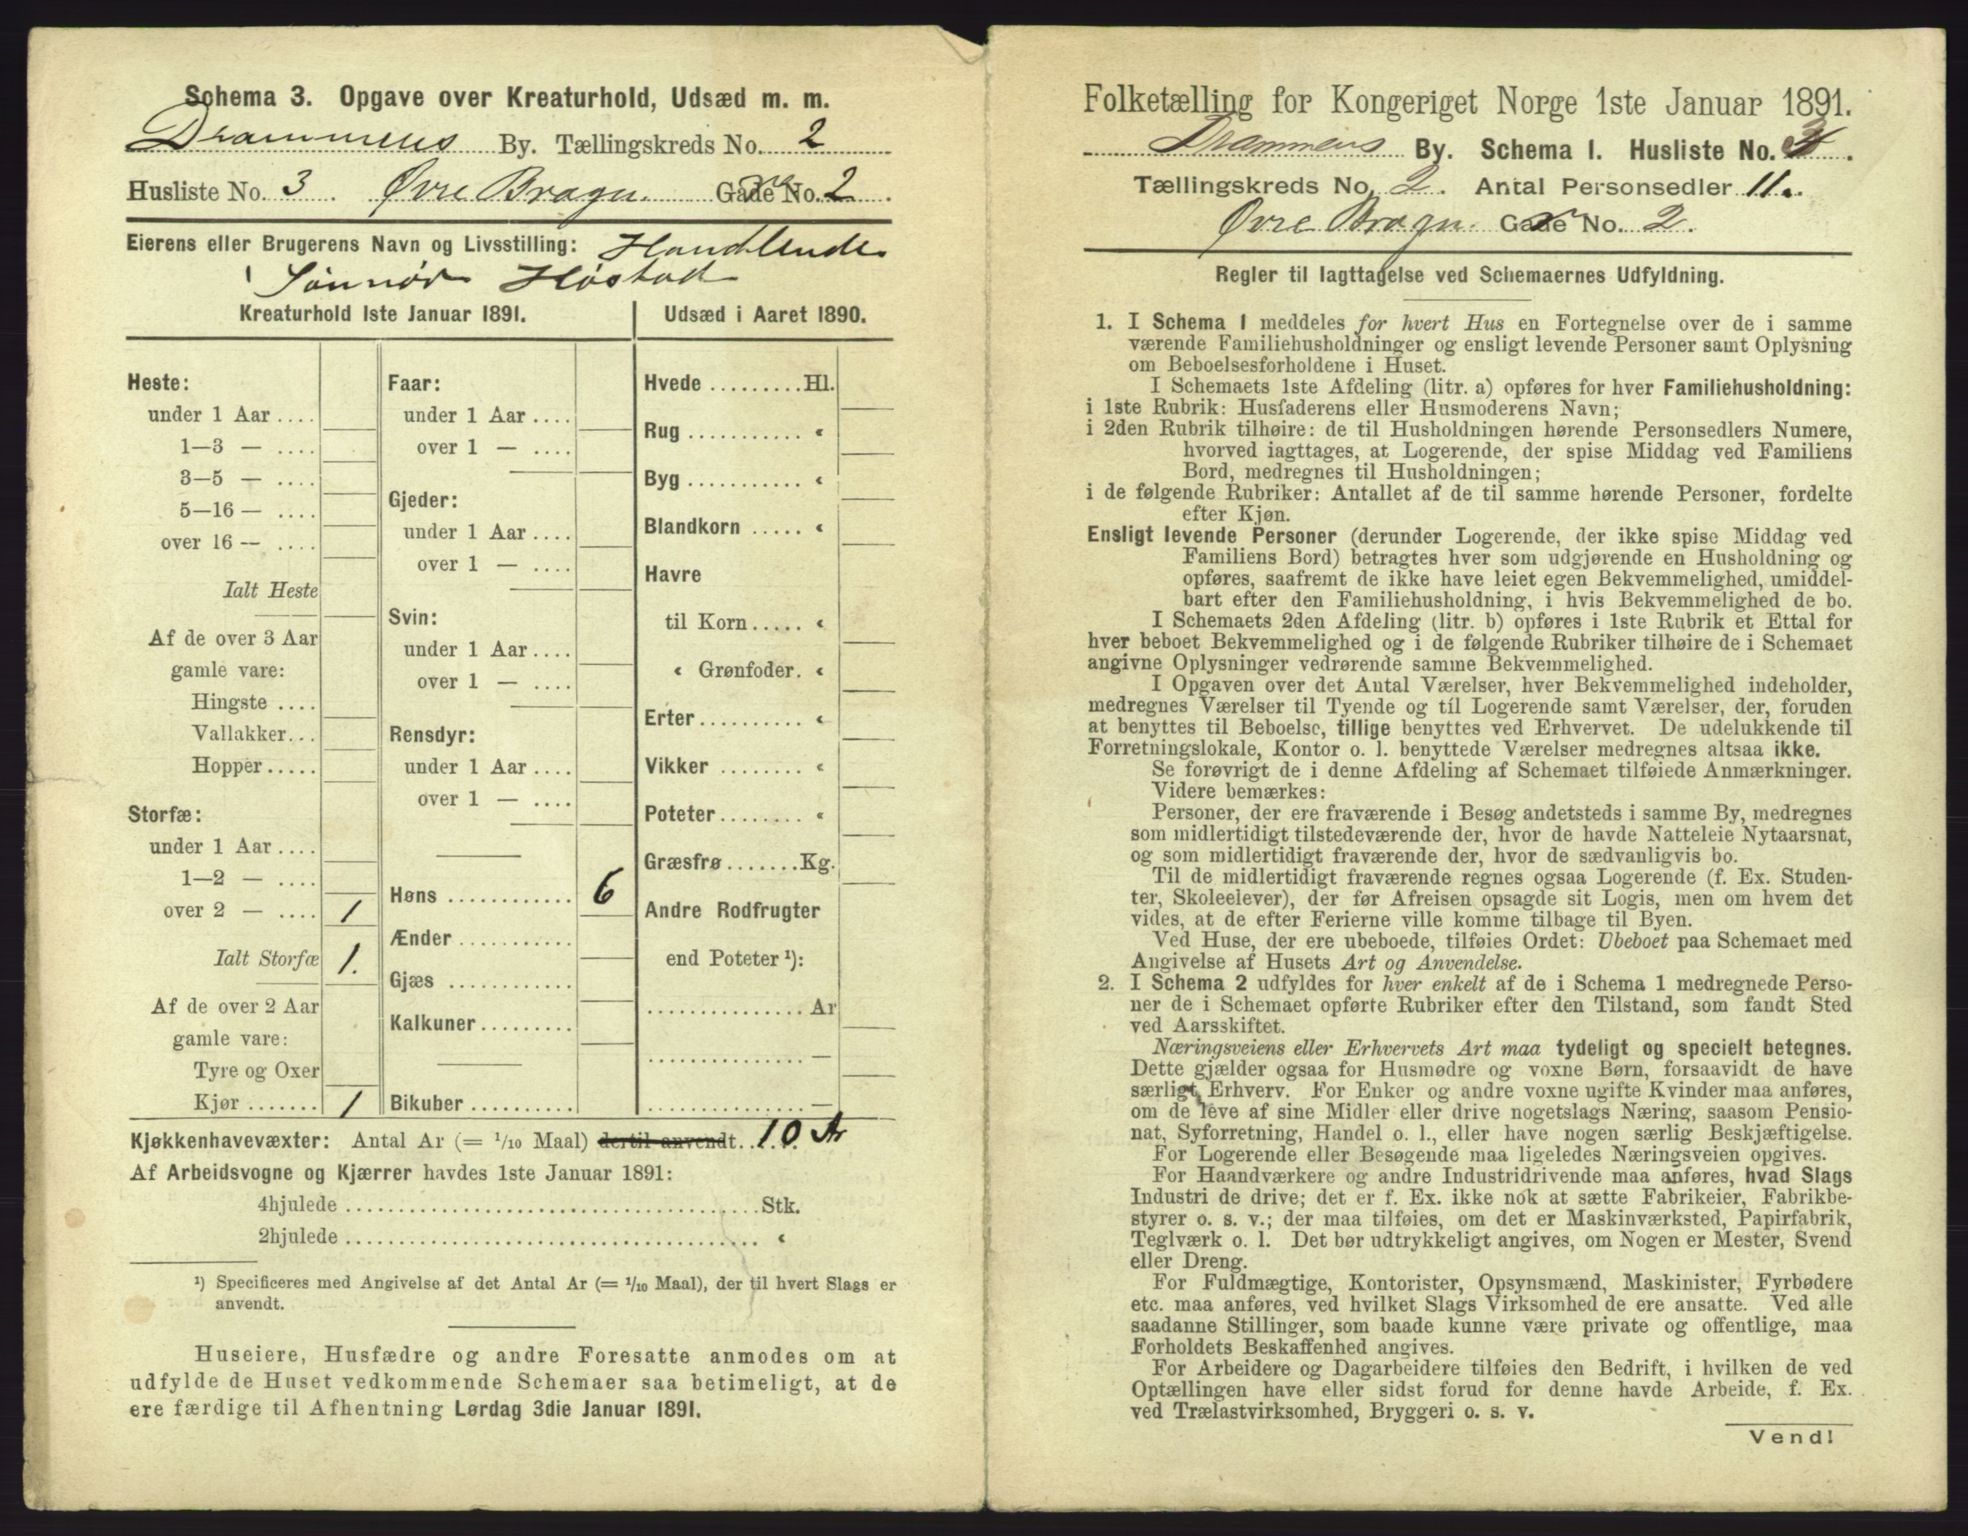 Schema 3. Opgave over Kreaturhold, Udsæd m. m.
Drammens By. Tællingskreds No. 2
Husliste No. 3 Øvre Bragn. Gade No. 2
Eierens eller Brugerens Navn og Livsstilling: Handlende
Høstad
Kreaturhold 1ste Januar 1891.
Heste:
under 1 Aar ....
1—3 — ....
3—5 — ....
5—16 — ....
over 16 — ....
Ialt Heste
Af de over 3 Aar
gamle vare:
Hingste ....
Vallakker...
Hopper.....
Storfæ:
under 1 Aar ....
1—2 — ....
over 2 — .... 1
Ialt Storfæ 1.
Af de over 2 Aar
gamle vare:
Tyre og Oxer
Kjør ....... 1
Faar:
under 1 Aar ....
over 1 — ....
Gjeder:
under 1 Aar ....
over 1 — ....
Svin:
under 1 Aar ....
over 1 — ....
Rensdyr:
under 1 Aar ....
over 1 — ....
Høns ............ 6
Ænder ...........
Gjæs ............
Kalkuner.........
Bikuber ..........
Udsæd i Aaret 1890.
Hvede .........Hl.
Rug ........... «
Byg ........... «
Blandkorn ..... «
Havre
til Korn..... «
« Grønfoder. «
Erter.......... «
Vikker ........ «
Poteter........ «
Græsfrø .......Kg.
Andre Rodfrugter
end Poteter ¹):
............... Ar
............... —
............... —
Kjøkkenhavevæxter: Antal Ar (= 1/10 Maal) dertil anvendt. 10 Ar
Af Arbeidsvogne og Kjærrer havdes 1ste Januar 1891:
4hjulede ....................................... Stk.
2hjulede ....................................... «
¹) Specificeres med Angivelse af det Antal Ar (= 1/10 Maal), der til hvert Slags er
anvendt.
Huseiere, Husfædre og andre Foresatte anmodes om at
udfylde de Huset vedkommende Schemaer saa betimeligt, at de
ere færdige til Afhentning Lørdag 3die Januar 1891.
Folketælling for Kongeriget Norge 1ste Januar 1891.
Drammens By. Schema 1. Husliste No. 3.
Tællingskreds No. 2. Antal Personsedler 11.
Øvre Bragn. Gade No. 2.
Regler til Iagttagelse ved Schemaernes Udfyldning.
1. I Schema 1 meddeles for hvert Hus en Fortegnelse over de i samme
værende Familiehusholdninger og ensligt levende Personer samt Oplysning
om Beboelsesforholdene i Huset.
I Schemaets 1ste Afdeling (litr. a) opføres for hver Familiehusholdning:
i 1ste Rubrik: Husfaderens eller Husmoderens Navn;
i 2den Rubrik tilhøire: de til Husholdningen hørende Personsedlers Numere,
hvorved iagttages, at Logerende, der spise Middag ved Familiens
Bord, medregnes til Husholdningen;
i de følgende Rubriker: Antallet af de til samme hørende Personer, fordelte
efter Kjøn.
Ensligt levende Personer (derunder Logerende, der ikke spise Middag ved
Familiens Bord) betragtes hver som udgjørende en Husholdning og
opføres, saafremt de ikke have leiet egen Bekvemmelighed, umiddel-
bart efter den Familiehusholdning, i hvis Bekvemmelighed de bo.
I Schemaets 2den Afdeling (litr. b) opføres i 1ste Rubrik et Ettal for
hver beboet Bekvemmelighed og i de følgende Rubriker tilhøire de i Schemaet
angivne Oplysninger vedrørende samme Bekvemmelighed.
I Opgaven over det Antal Værelser, hver Bekvemmelighed indeholder,
medregnes Værelser til Tyende og til Logerende samt Værelser, der, foruden
at benyttes til Beboelse, tillige benyttes ved Erhvervet. De udelukkende til
Forretningslokale, Kontor o. l. benyttede Værelser medregnes altsaa ikke.
Se forøvrigt de i denne Afdeling af Schemaet tilføiede Anmærkninger.
Videre bemærkes:
Personer, der ere fraværende i Besøg andetsteds i samme By, medregnes
som midlertidigt tilstedeværende der, hvor de havde Natteleie Nytaarsnat,
og som midlertidigt fraværende der, hvor de sædvanligvis bo.
Til de midlertidigt fraværende regnes ogsaa Logerende (f. Ex. Studen-
ter, Skoleelever), der før Afreisen opsagde sit Logis, men om hvem det
vides, at de efter Ferierne ville komme tilbage til Byen.
Ved Huse, der ere ubeboede, tilføies Ordet: Ubeboet paa Schemaet med
Angivelse af Husets Art og Anvendelse.
2. I Schema 2 udfyldes for hver enkelt af de i Schema 1 medregnede Perso-
ner de i Schemaet opførte Rubriker efter den Tilstand, som fandt Sted
ved Aarsskiftet.
Næringsveiens eller Erhvervets Art maa tydeligt og specielt betegnes.
Dette gjælder ogsaa for Husmødre og voxne Børn, forsaavidt de have
særligt Erhverv. For Enker og andre voxne ugifte Kvinder maa anføres,
om de leve af sine Midler eller drive nogetslags Næring, saasom Pensio-
nat, Syforretning, Handel o. l., eller have nogen særlig Beskjæftigelse.
For Logerende eller Besøgende maa ligeledes Næringsveien opgives.
For Haandværkere og andre Industridrivende maa anføres, hvad Slags
Industri de drive; det er f. Ex. ikke nok at sætte Fabrikeier, Fabrikbe-
styrer o. s. v.; der maa tilføies, om det er Maskinværksted, Papirfabrik,
Teglværk o. l. Det bør udtrykkeligt angives, om Nogen er Mester, Svend
eller Dreng.
For Fuldmægtige, Kontorister, Opsynsmænd, Maskinister, Fyrbødere
etc. maa anføres, ved hvilket Slags Virksomhed de ere ansatte. Ved alle
saadanne Stillinger, som baade kunne være private og offentlige, maa
Forholdets Beskaffenhed angives.
For Arbeidere og Dagarbeidere tilføies den Bedrift, i hvilken de ved
Optællingen have eller sidst forud for denne havde Arbeide, f. Ex.
ved Trælastvirksomhed, Bryggeri o. s. v.
Vend!